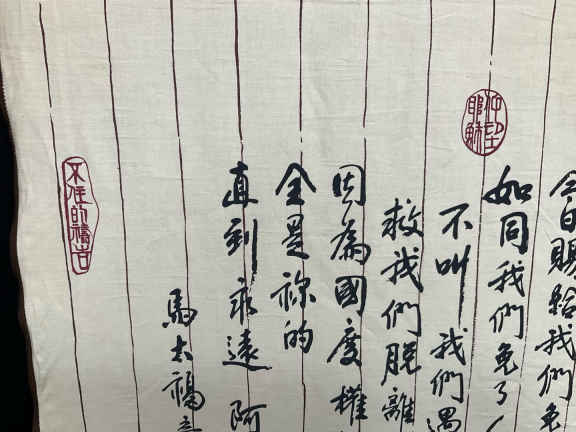 仰望耶穌
今日賜給我們免
如同我們免了
不叫我們遇
救我們脫離
因為國度權
全是祢的
直到永遠 阿
馬太福音
不住的禱告